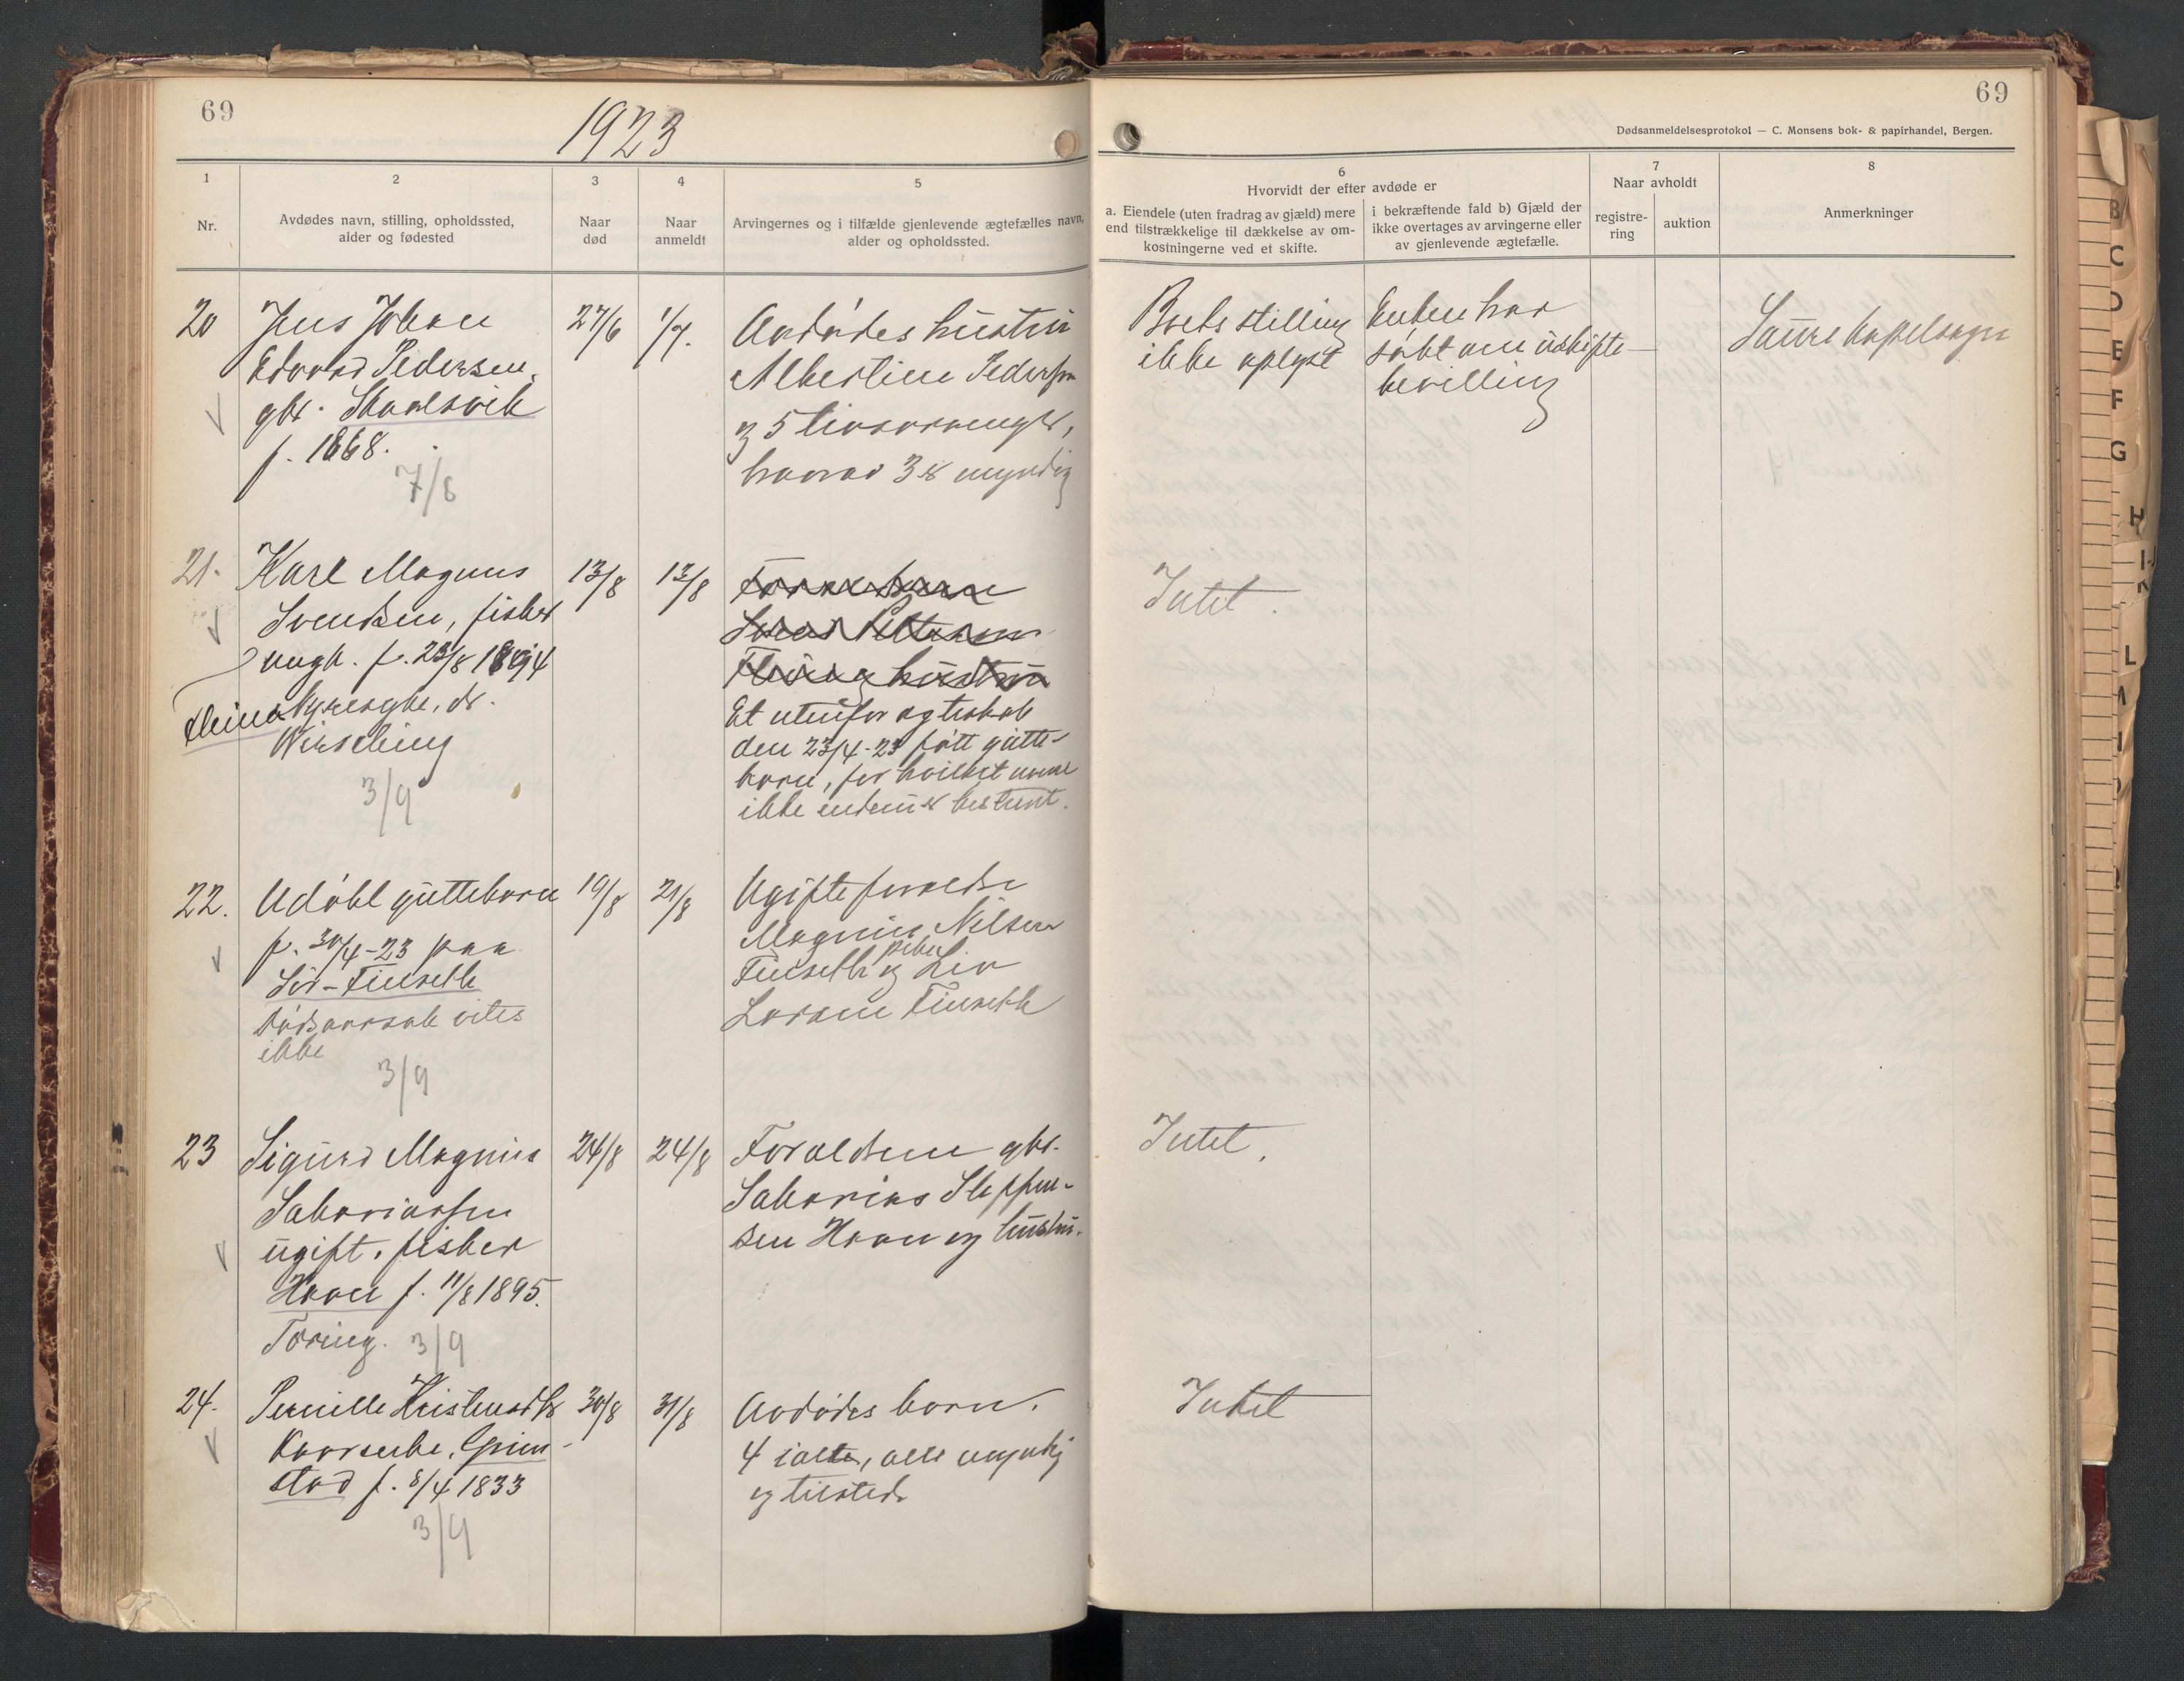 69
1923
1
2
3
4
5
Nr.
Avdødes navn, stilling, opholdssted,
alder og fødested
Naar
død
Naar
anmeldt
Arvingernes og i tilfælde gjenlevende ægtefælles navn,
alder og opholdssted.
20
Jens Johan
Edvard Pedersen,
gbr. Skaalsvik
f. 1868.
7/8
27/6
1/7.
Avdødes hustru
Albertine Pedersen
og 5 livsarvinger,
hvorav 3 er myndig
21.
Karl Magnus
Svendsen, fisker
ungk. f. 23/8 1894
Fleina
3/9
13/8
13/8
Et utenfor egteskab
den 23/4-23 født gutte-
barn, for hvilket navne
ikke endnu er bestemt.
22.
Udøbt guttebarn
f. 30/4-23 paa
Sør-Finseth
Dødsaarsak vites
ikke
3/9
19/8
21/8
Ugifte foreldre
Magnus Nilsen
Finseth og pike Liv
Lorane Finseth
23
Sigurd Magnus
Sakariassen
ugift. fisker
Havn f. 11/8 1895.
Tæring. 3/9
24/8
24/8
Forældrene gbr.
Sakarias Steffen-
sen Havn og hustru.
24.
Pernille Kristensdtr
Grim-
stad f. 8/4 1833
3/9
30/8
31/8
Avdødes barn.
4 ialt, alle myndig
og tilsted
69
Dødsanmeldelsesprotokol — C. Monsens bok- & papirhandel, Bergen.
6
Hvorvidt der efter avdøde er
a. Eiendele (uten fradrag av gjæld) mere
end tilstrækkelige til dækkelse av om-
kostningerne ved et skifte.
i bekræftende fald b) Gjæld der
ikke overtages av arvingerne eller
av gjenlevende ægtefælle.
7
Naar avholdt
registre-
ring
auktion
8
Anmerkninger
Boets stilling
ikke oplyst
Enken har
søkt om uskifte-
bevilling
Saura kapelsogn
Intet.
Intet.
Intet
B
C
D
E
F
G
H
L